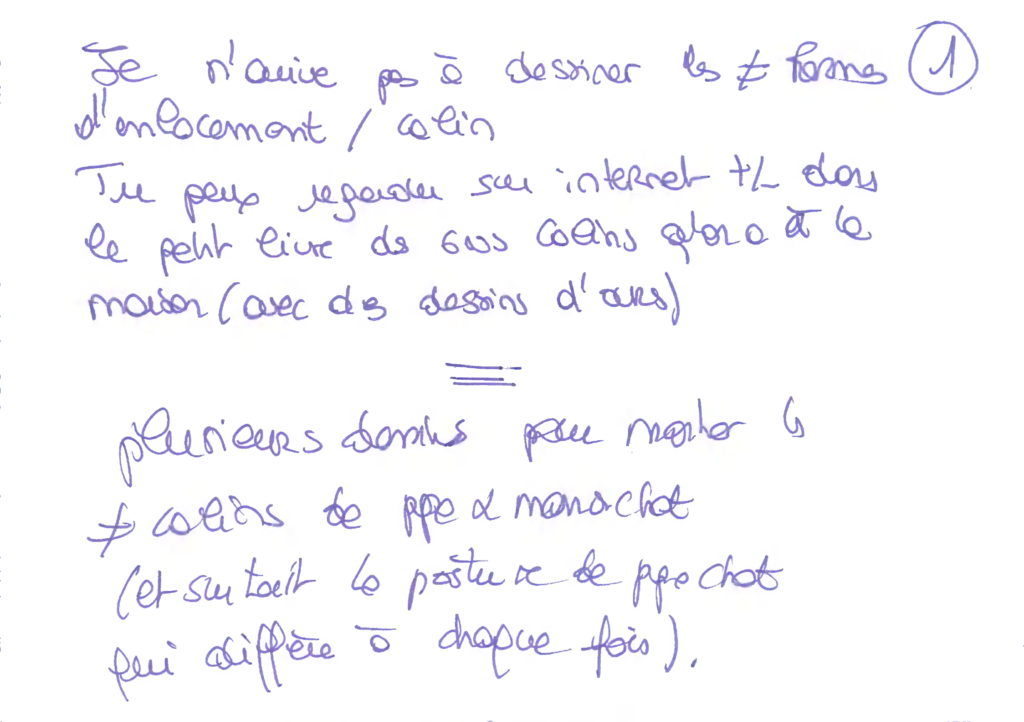 Je n'arrive pas à dessiner les ≠ formes ①
d'enlacement / calin
Tu peux regarder sur internet +/- dans
le petit livre de calins qu'on a à la
maison (avec des dessins d'ours)
plusieurs dessins pour montrer les
≠ calins de ppe & manachat
(et surtout la posture de ppe chat
qui diffère à chaque fois).